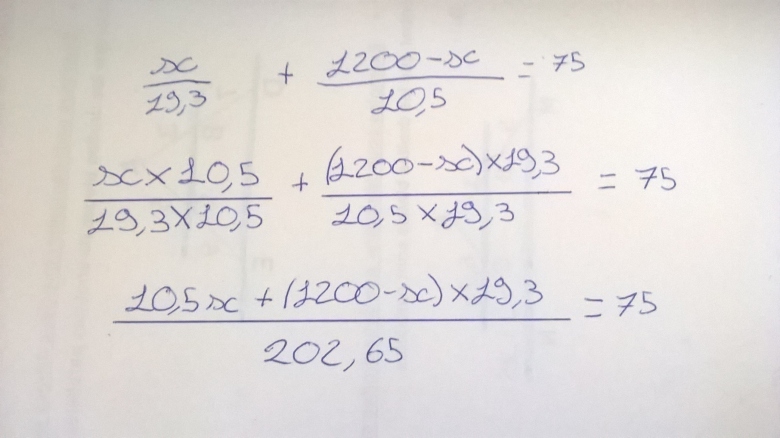 x/19,3 + (1200-x)/10,5 = 75
(x×10,5)/(19,3×10,5) + ((1200-x)×19,3)/(10,5×19,3) = 75
(10,5x+(1200-x)×19,3)/202,65 = 75